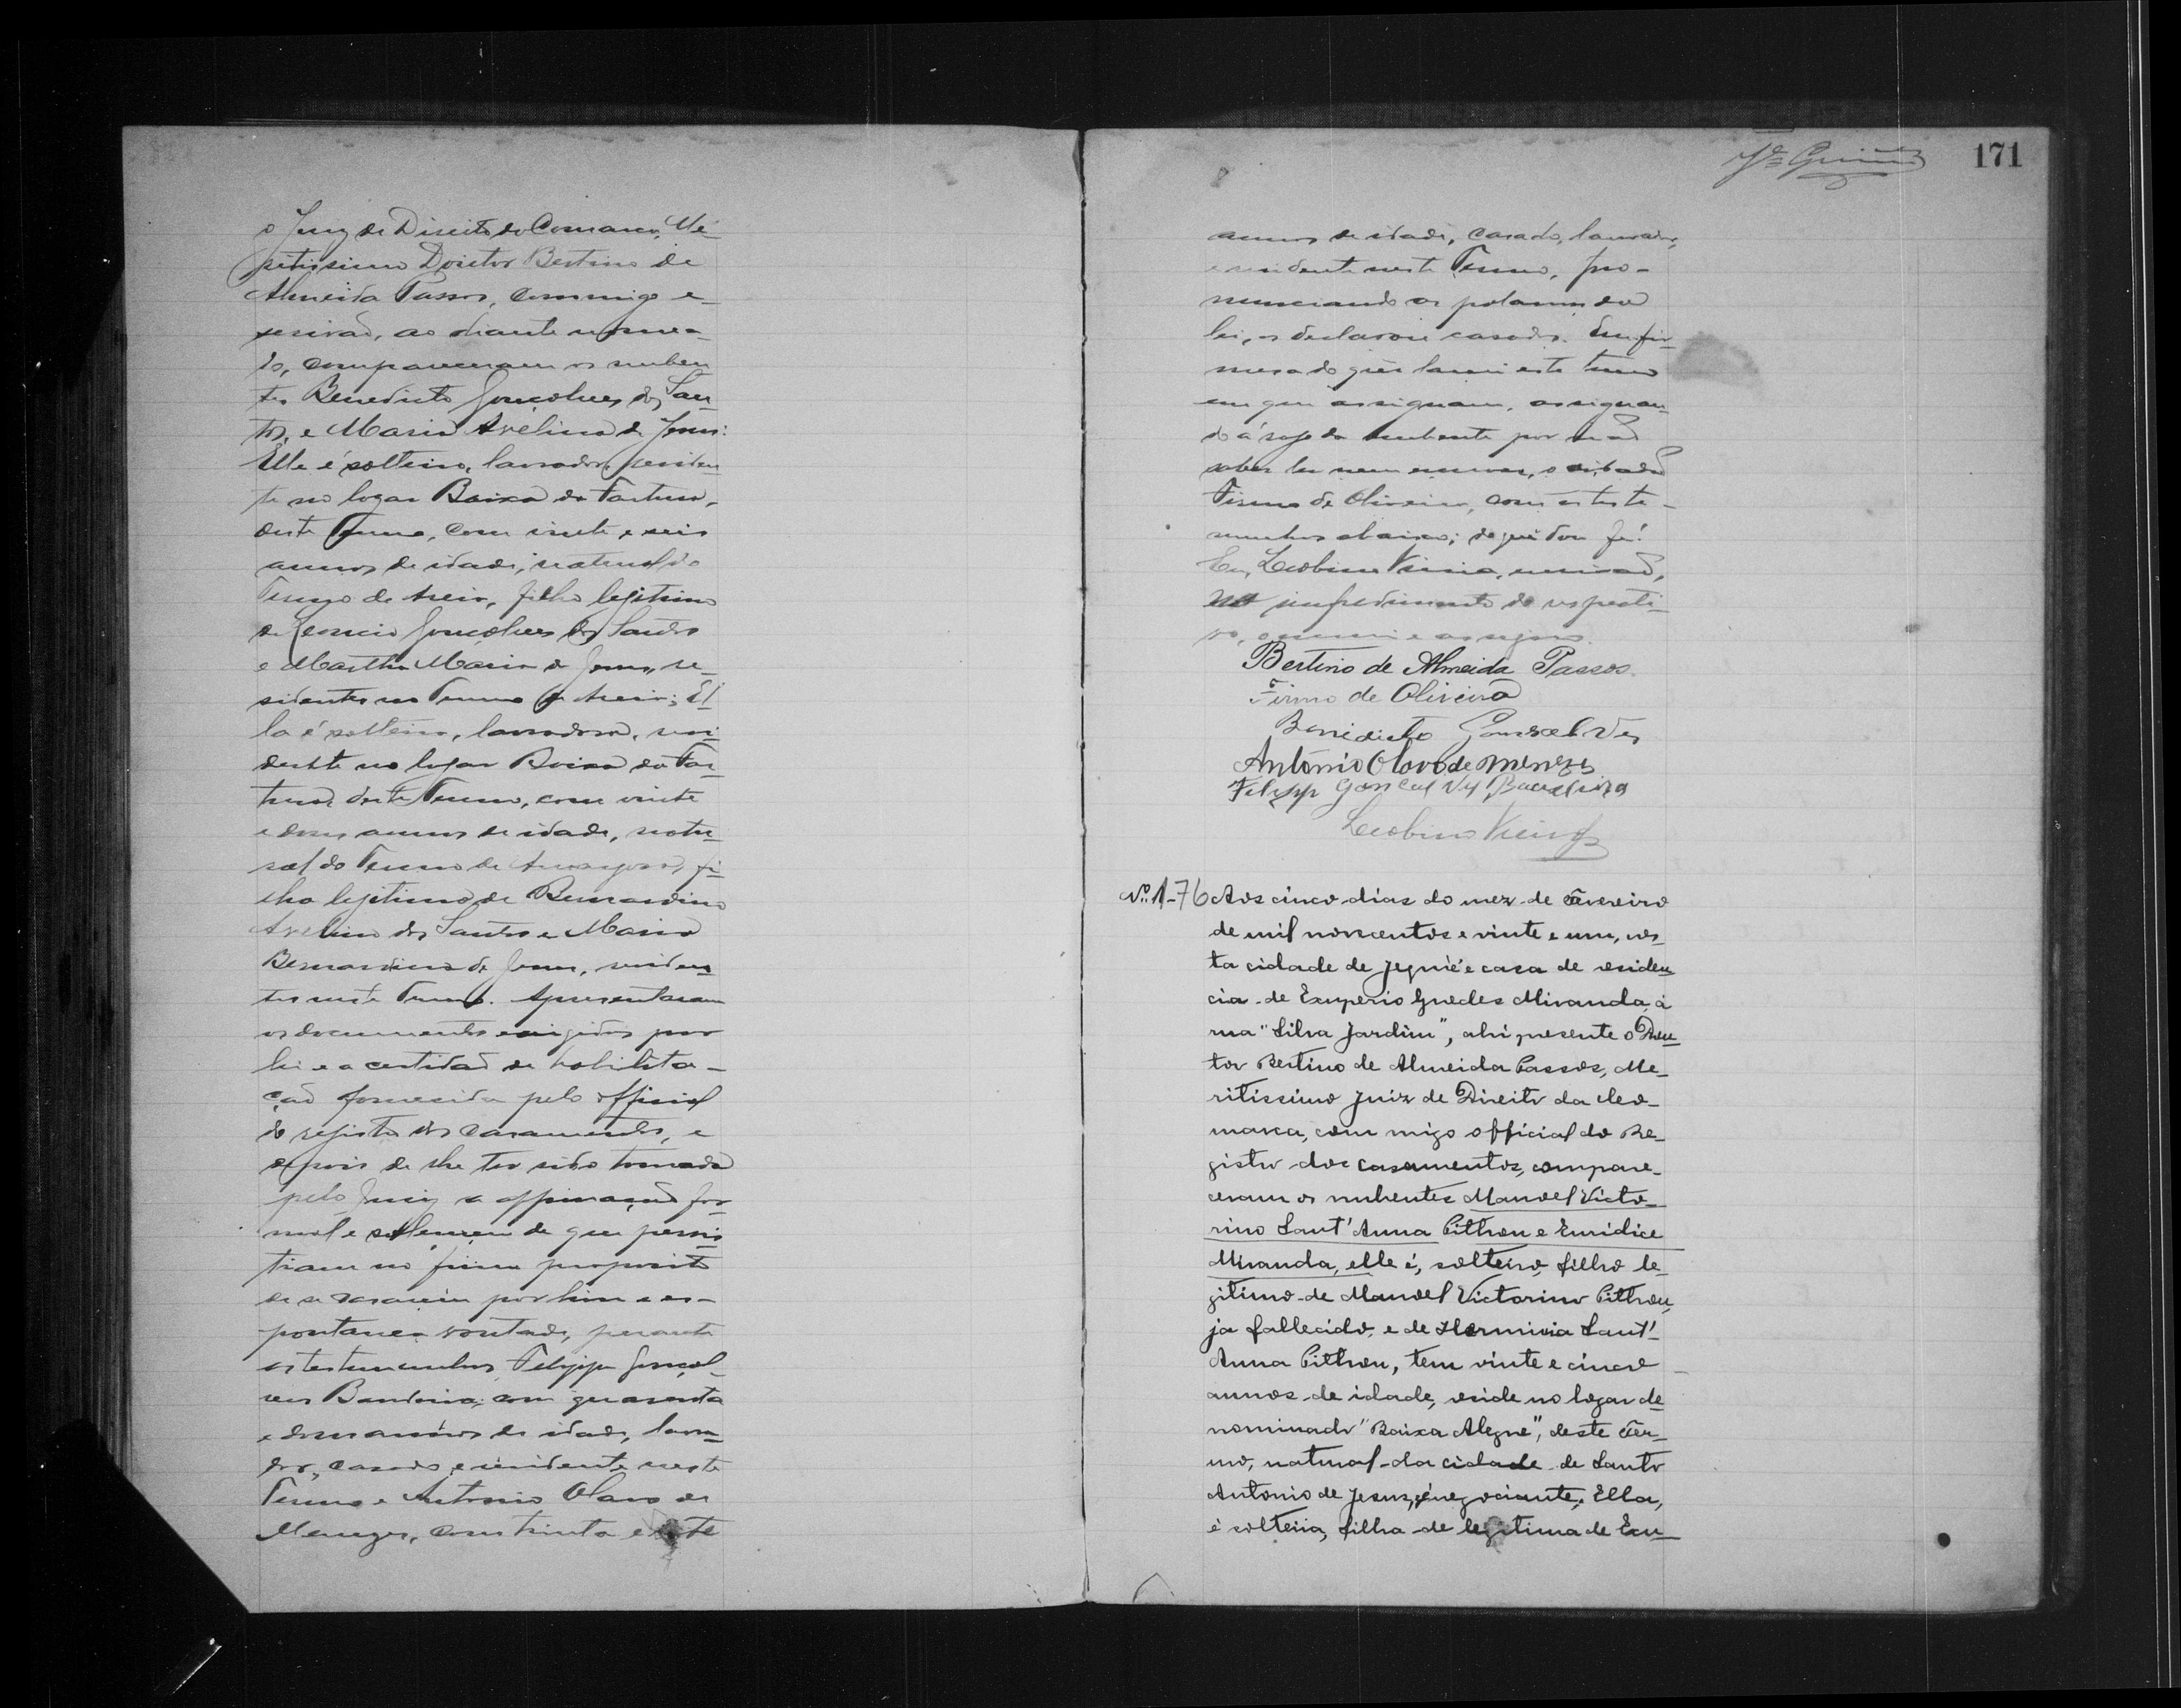 o Juiz de Direito da Comarca, Me-
ritissimo Doutor Bertino de
Almeida Passos, commigo e-
scrivão, ao diante nomea-
do, compareceram os nuben-
tes Benedicto Gonçalves dos San-
tos, e Maria Avelina de Jesus:
Elle é solteiro, lavrador, residen-
te no logar Baixa da Fartura,
deste Termo, com vinte e seis
annos de idade, natural do
Termo de Areia, filho legitimo
de Leoncio Gonçalves dos Santos
e Martha Maria de Jesus, re-
sidentes no Termo de Areia; El-
la é solteira, lavradora, resi-
dente no logar Baixa da Far-
tura deste Termo, com vinte
e dous annos de idade, natu-
ral do Termo de Amargosa, fi-
lha legitima de Bernardino
Avelino dos Santos e Maria
Bernardina de Jesus, residen-
tes neste Termo. Apresentaram
os documentos exigidos por
lei e a certidão de habilita-
ção fornecida pelo official
do registo dos casamentos, e
depois de lhe ter sido tomada
pelo Juiz a affirmação for-
mal e sollemne de que persis-
tiam no firme proposito
de se casarem por livre e es-
pontanea vontade, perante
as testemunhas Felippe Gonçal-
ves Bandeira, com quarenta
e dous annos de idade, lavra-
dor, casado, e residente neste
Termo e Antonio Olavo de
Menezes, com trinta e
171
annos de idade, casado, lavrador,
e residente neste Termo, pro-
nunciando as palavras da
lei, os declarou casados. Em fir-
mesa do que lavrei este termo
em que assignam, assignan-
do á rogo da nubente por não
saber ler nem escrever, o cidadão
Firmo de Oliveira, com as teste-
munhas abaixo; do que dou fé.
Eu, Leobino Vieira, escrivão,
no impedimento do respecti-
vo, o escrevi e assigno.
Bertino de Almeida Passos.
Firmo de Oliveira
Benedicto Gonsalves
Antônio Olavo de Menezes
Felipp Goncalves Bandeira
Leobino Vieira
Nº 176 Aos cinco dias do mez de Fevereiro
de mil novecentos e vinte e um, nes-
ta cidade de Jequié e casa de residen-
cia de Exuperio Guedes Miranda, á
rua "Silva Jardim", ahi presente o Dou-
tor Bertino de Almeida Passos, Me-
ritissimo Juiz de Direito da Co-
marca, com migo official do Re-
gistro dos casamentos, compare-
ceram os nubentes Manoel Victo-
rino Sant'Anna Pithon e Euridice
Miranda, elle é, solteiro, filho le-
gitimo de Manoel Victorino Pithon,
ja fallecido, e de Herminia Sant'
Anna Pithon, tem vinte e cinco
annos de idade, reside no logar de-
nominado "Baixa Alegre", deste Ter-
mo, natural da cidade de Santo
Antonio de Jesus, é negociante, Ella,
é solteira, filha de legitima de Exu-